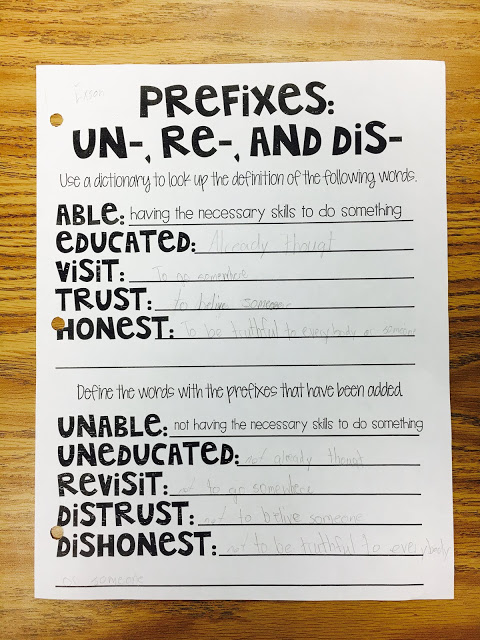 Erson
PREFIXES:
UN-, RE-, AND DIS-
Use a dictionary to look up the definition of the following words.
ABLE: having the necessary skills to do something
EDUCATED: Already thougt
VISIT: To go somewhere
TRUST: to belive someone
HONEST: To be truthful to everybody or someone
Define the words with the prefixes that have been added.
UNABLE: not having the necessary skills to do something
UNEDUCATED: not already thougt
REVISIT: not to go somewhere
DISTRUST: not to belive someone
DISHONEST: not to be truthful to everybody
or someone